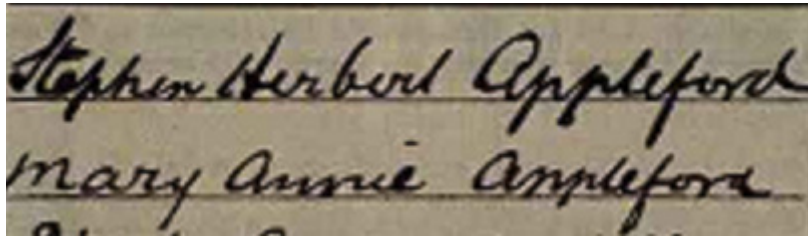 Stephen Herbert Appleford
Mary Annie Appleford